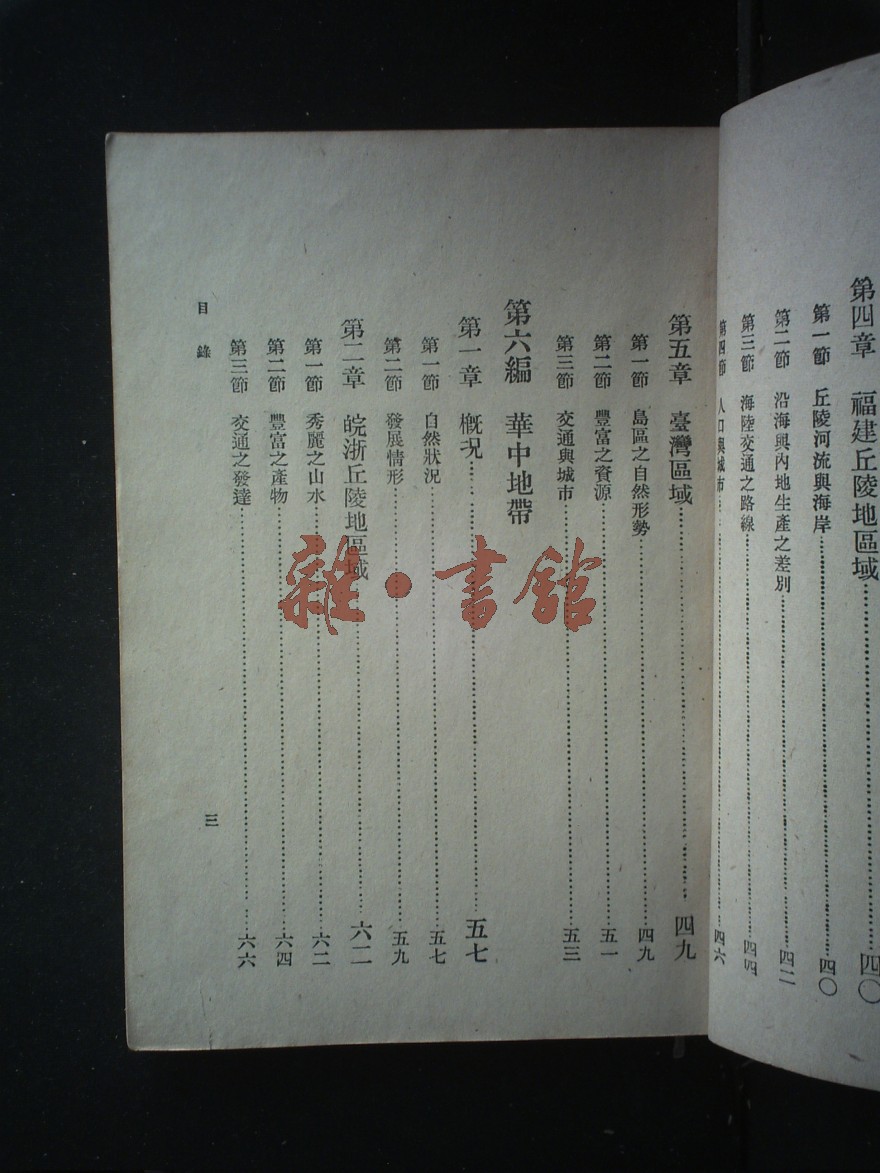 第四章 福建丘陵地區域……四〇
第一節 丘陵河流與海岸……四〇
第二節 沿海與內地生產之差別……四二
第三節 海陸交通之路線……四四
第四節 人口與城市……四六
第五章 臺灣區域……四九
第一節 島區之自然形勢……四九
第二節 豐富之資源……五一
第三節 交通與城市……五三
第六編 華中地帶
第一章 槪況……五七
第一節 自然狀況……五七
第二節 發展情形……五九
第二章 皖浙丘陵地區域……六二
第一節 秀麗之山水……六二
第二節 豐富之產物……六四
第三節 交通之發達……六六
目錄
三
雜·書館